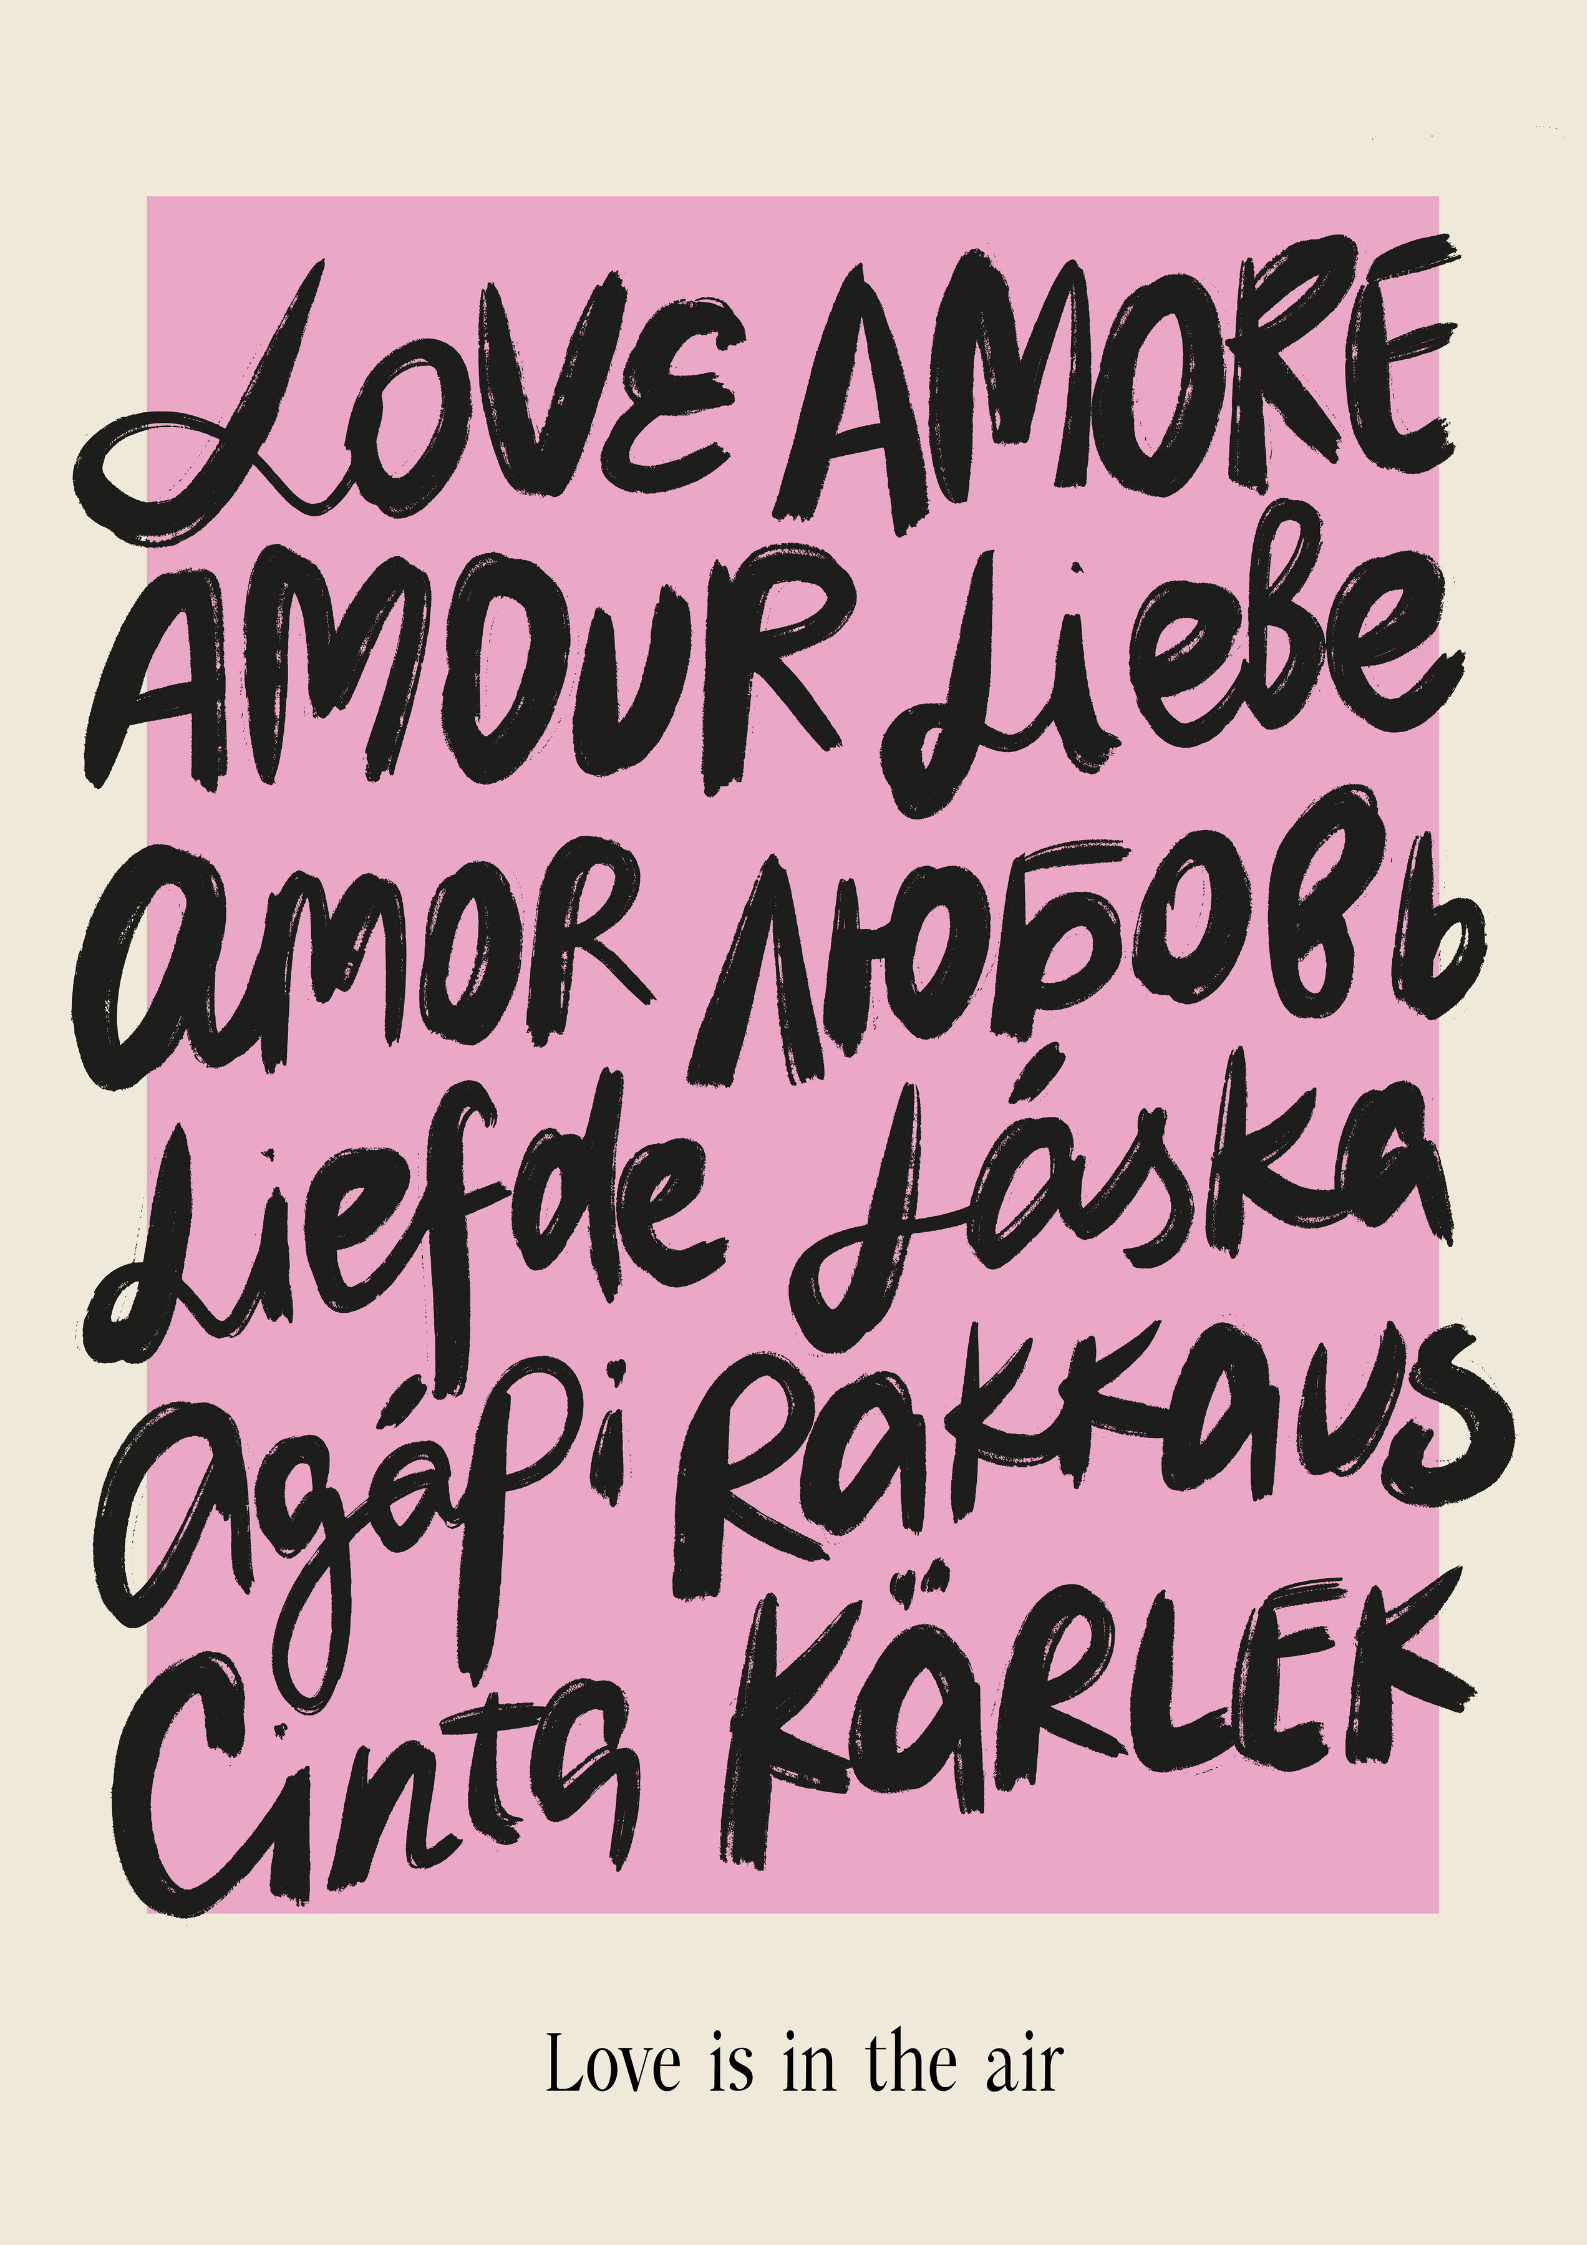 Love AMORE
AMOUR Liebe
amor ЛЮБОВЬ
Liefde Láska
Agápi Rakkaus
Cinta KäRLEK
Love is in the air